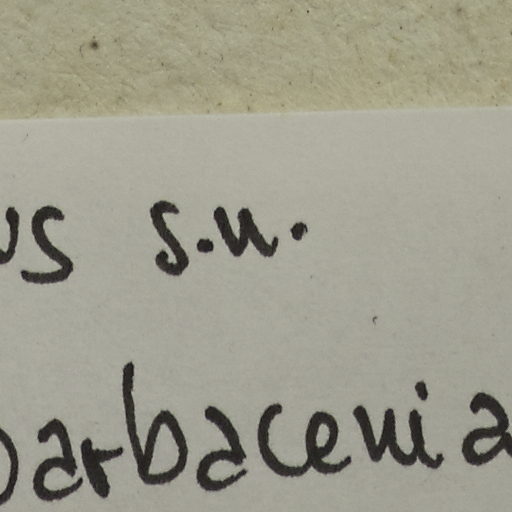 us s.n.
barbacenia